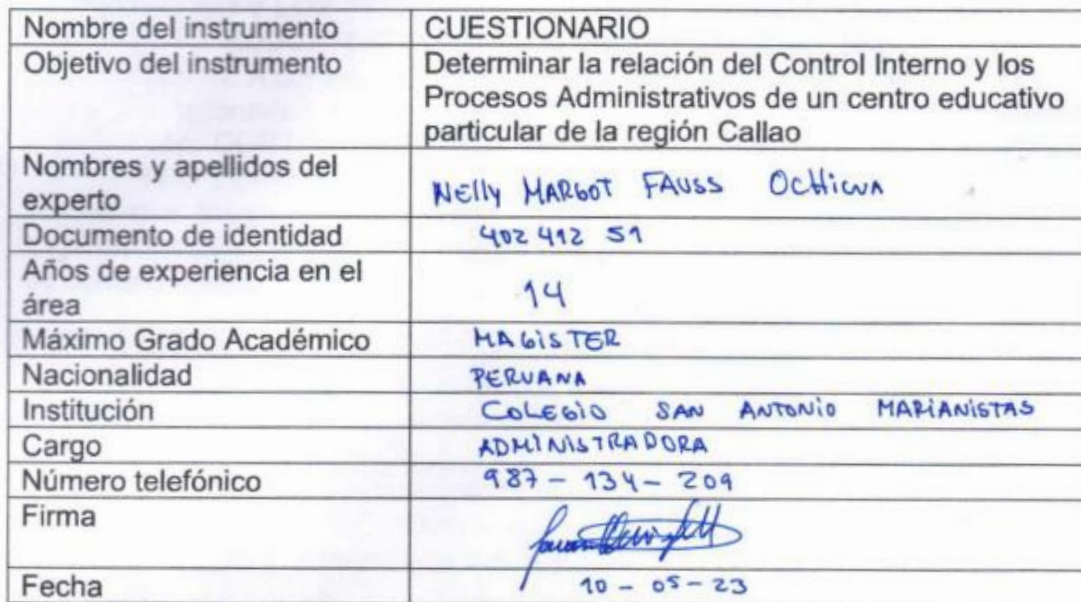 Nombre del instrumento CUESTIONARIO
Objetivo del instrumento Determinar la relación del Control Interno y los
Procesos Administrativos de un centro educativo
particular de la región Callao
Nombres y apellidos del
experto NElly MARGOT FAUSS OCHICUA
Documento de identidad 402 412 51
Años de experiencia en el
área 14
Máximo Grado Académico MAGISTER
Nacionalidad PERUANA
Institución COLEGIO SAN ANTONIO MARIANISTAS
Cargo ADMINISTRADORA
Número telefónico 987 - 134 - 209
Firma
Fecha 10 - 05 - 23